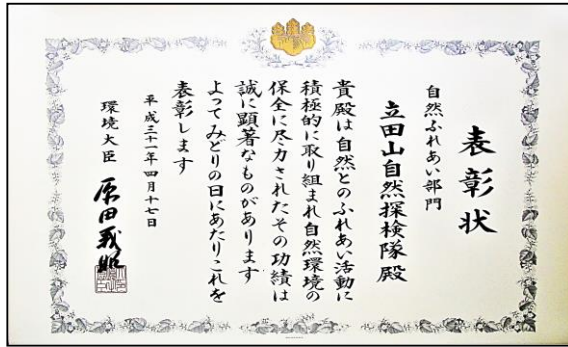 表彰状
自然ふれあい部門
立田山自然探検隊殿
貴殿は自然とのふれあい活動に
積極的に取り組まれ自然環境の
保全に尽力されたその功績は
誠に顕著なものがあります
よってみどりの日にあたりこれを
表彰します
平成三十一年四月十七日
環境大臣 原田義昭